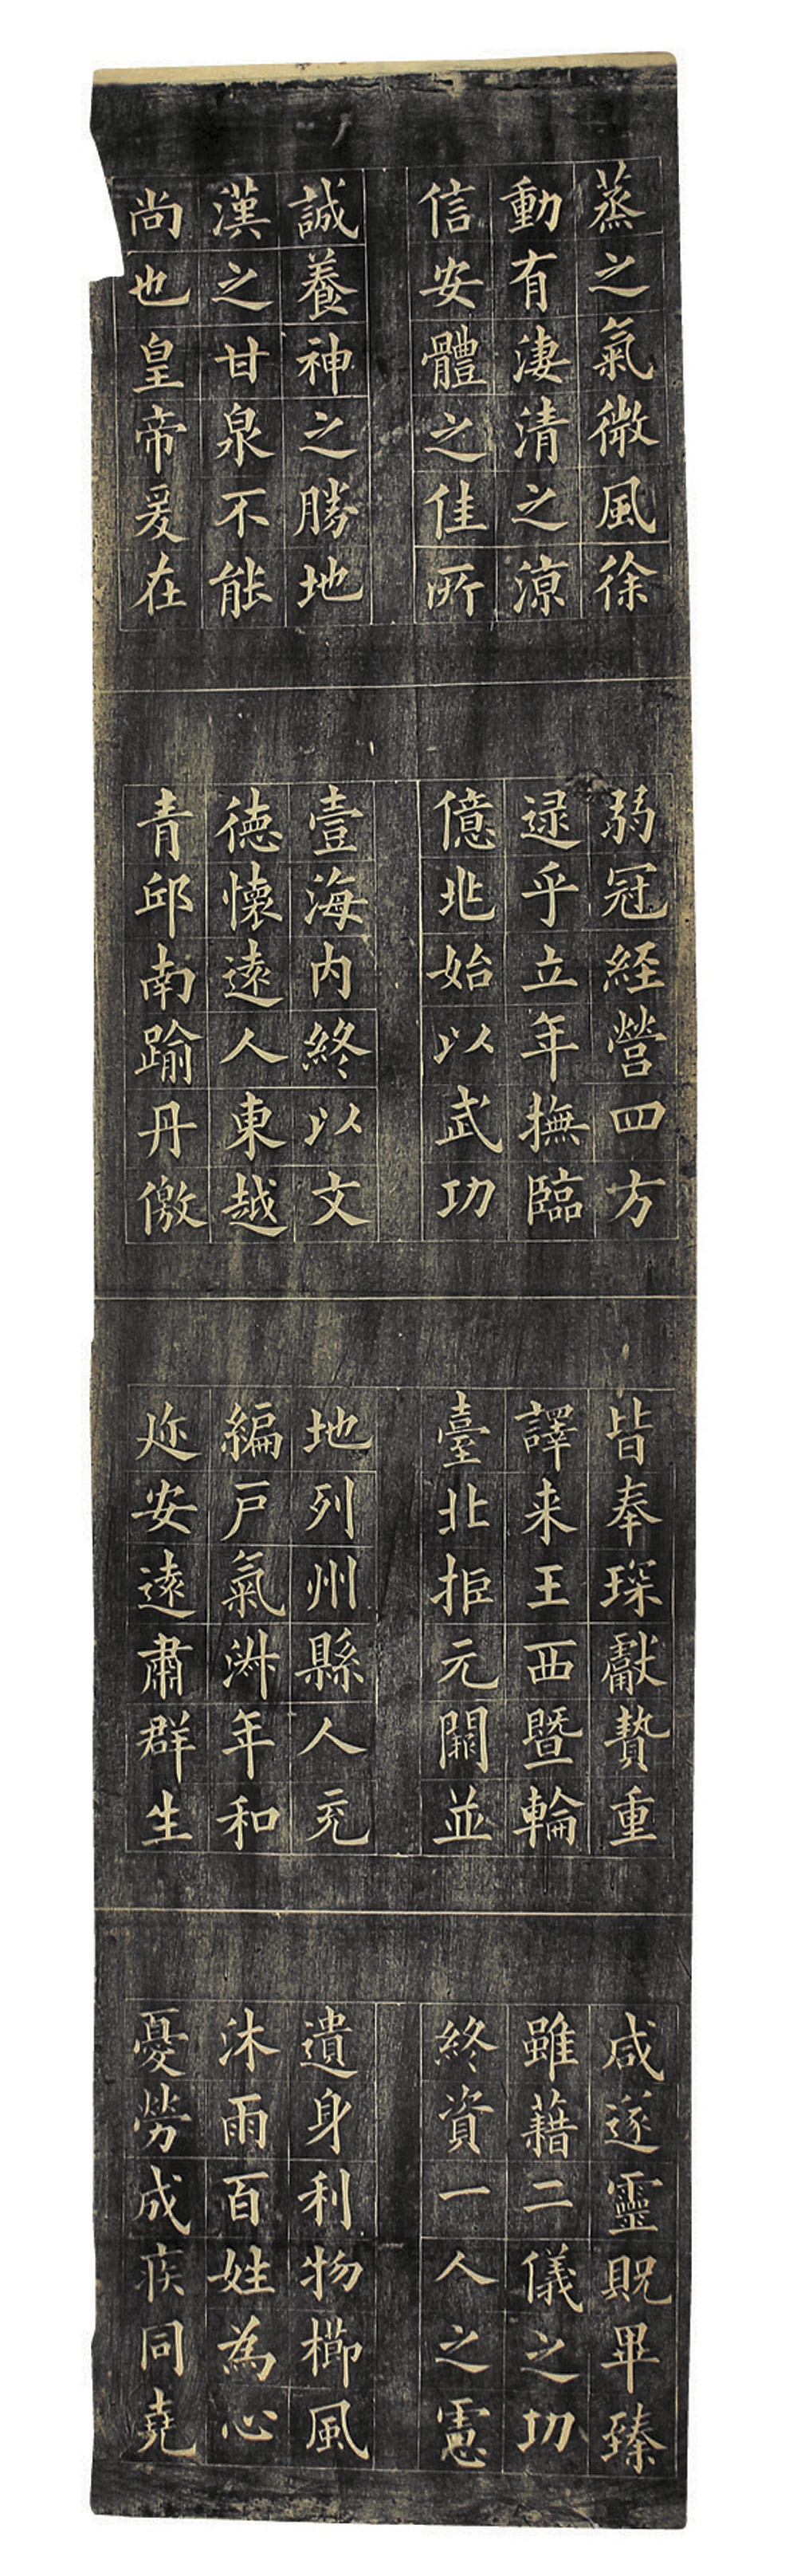 蒸之氣微風徐
動有淒清之涼
信安體之佳所
誠養神之勝地
漢之甘泉不能
尚也皇帝爰在
弱冠經營四方
逯乎立年撫臨
億兆始以武功
壹海内終以文
德懷遠人東越
青邱南踰丹儌
皆奉琛獻贄重
譯来王西暨輪
臺北拒元闕並
地列州縣人充
編戶氣淋年和
迩安遠肅群生
咸遂靈貺畢臻
雖藉二儀之功
終資一人之慮
遺身利物櫛風
沐雨百姓為心
憂勞成疾同堯